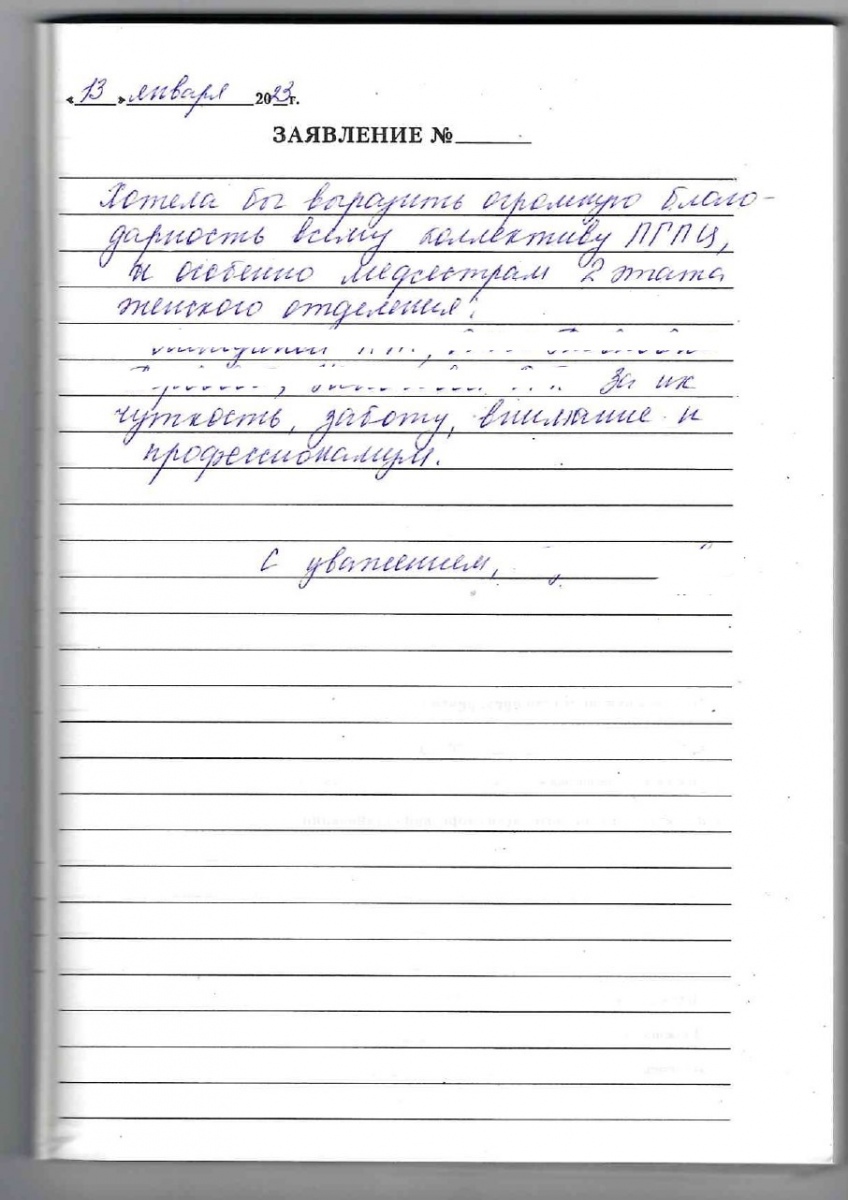 «13» января 2023г.
ЗАЯВЛЕНИЕ №
Хотела бы выразить огромную благо-
дарность всему коллективу ПГПЦ,
и особенно медсестрам 2 этажа
женского отделения:
За их
чуткость, заботу, внимание и
профессионализм.
С уважением,